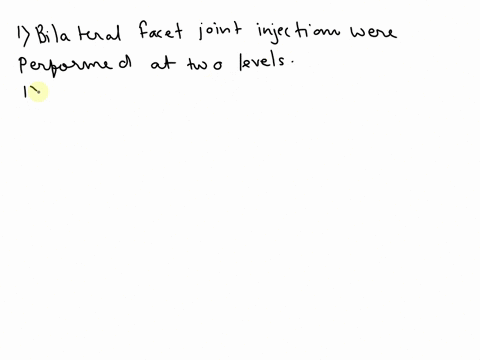 1) Bilateral facet joint injection were
Performed at two levels.
1)